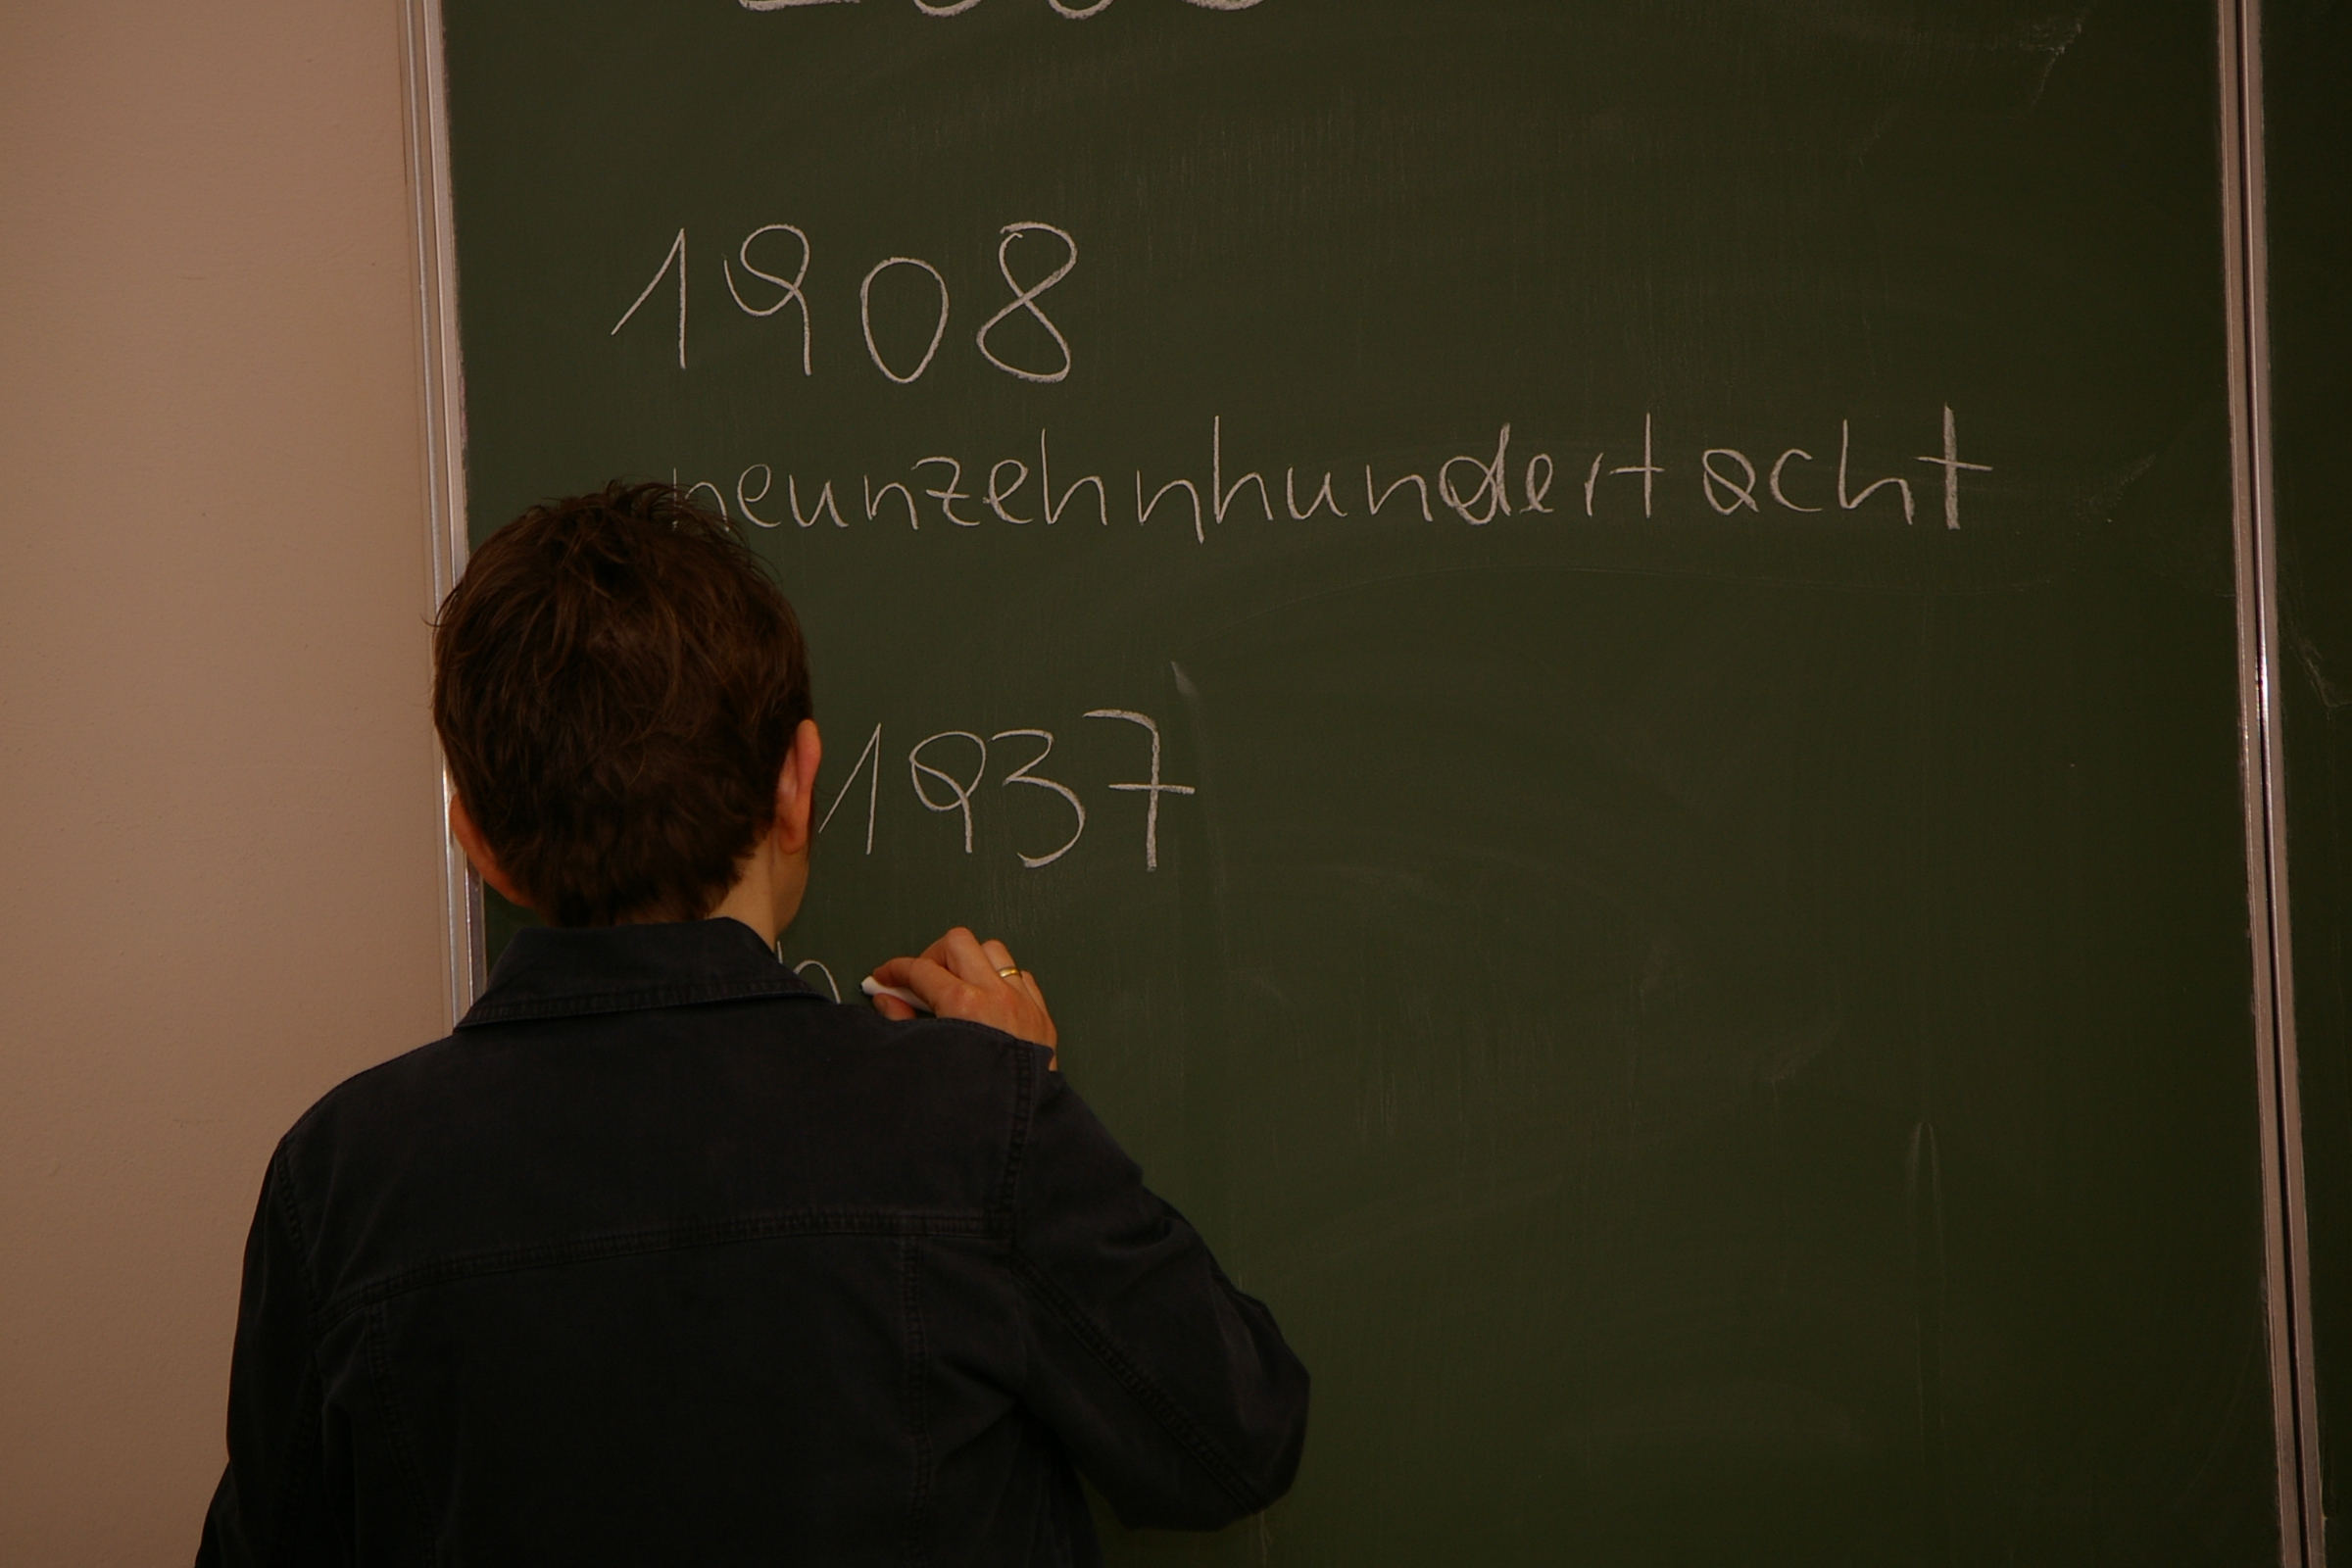 1908
neunzehnhundertacht
1937
n